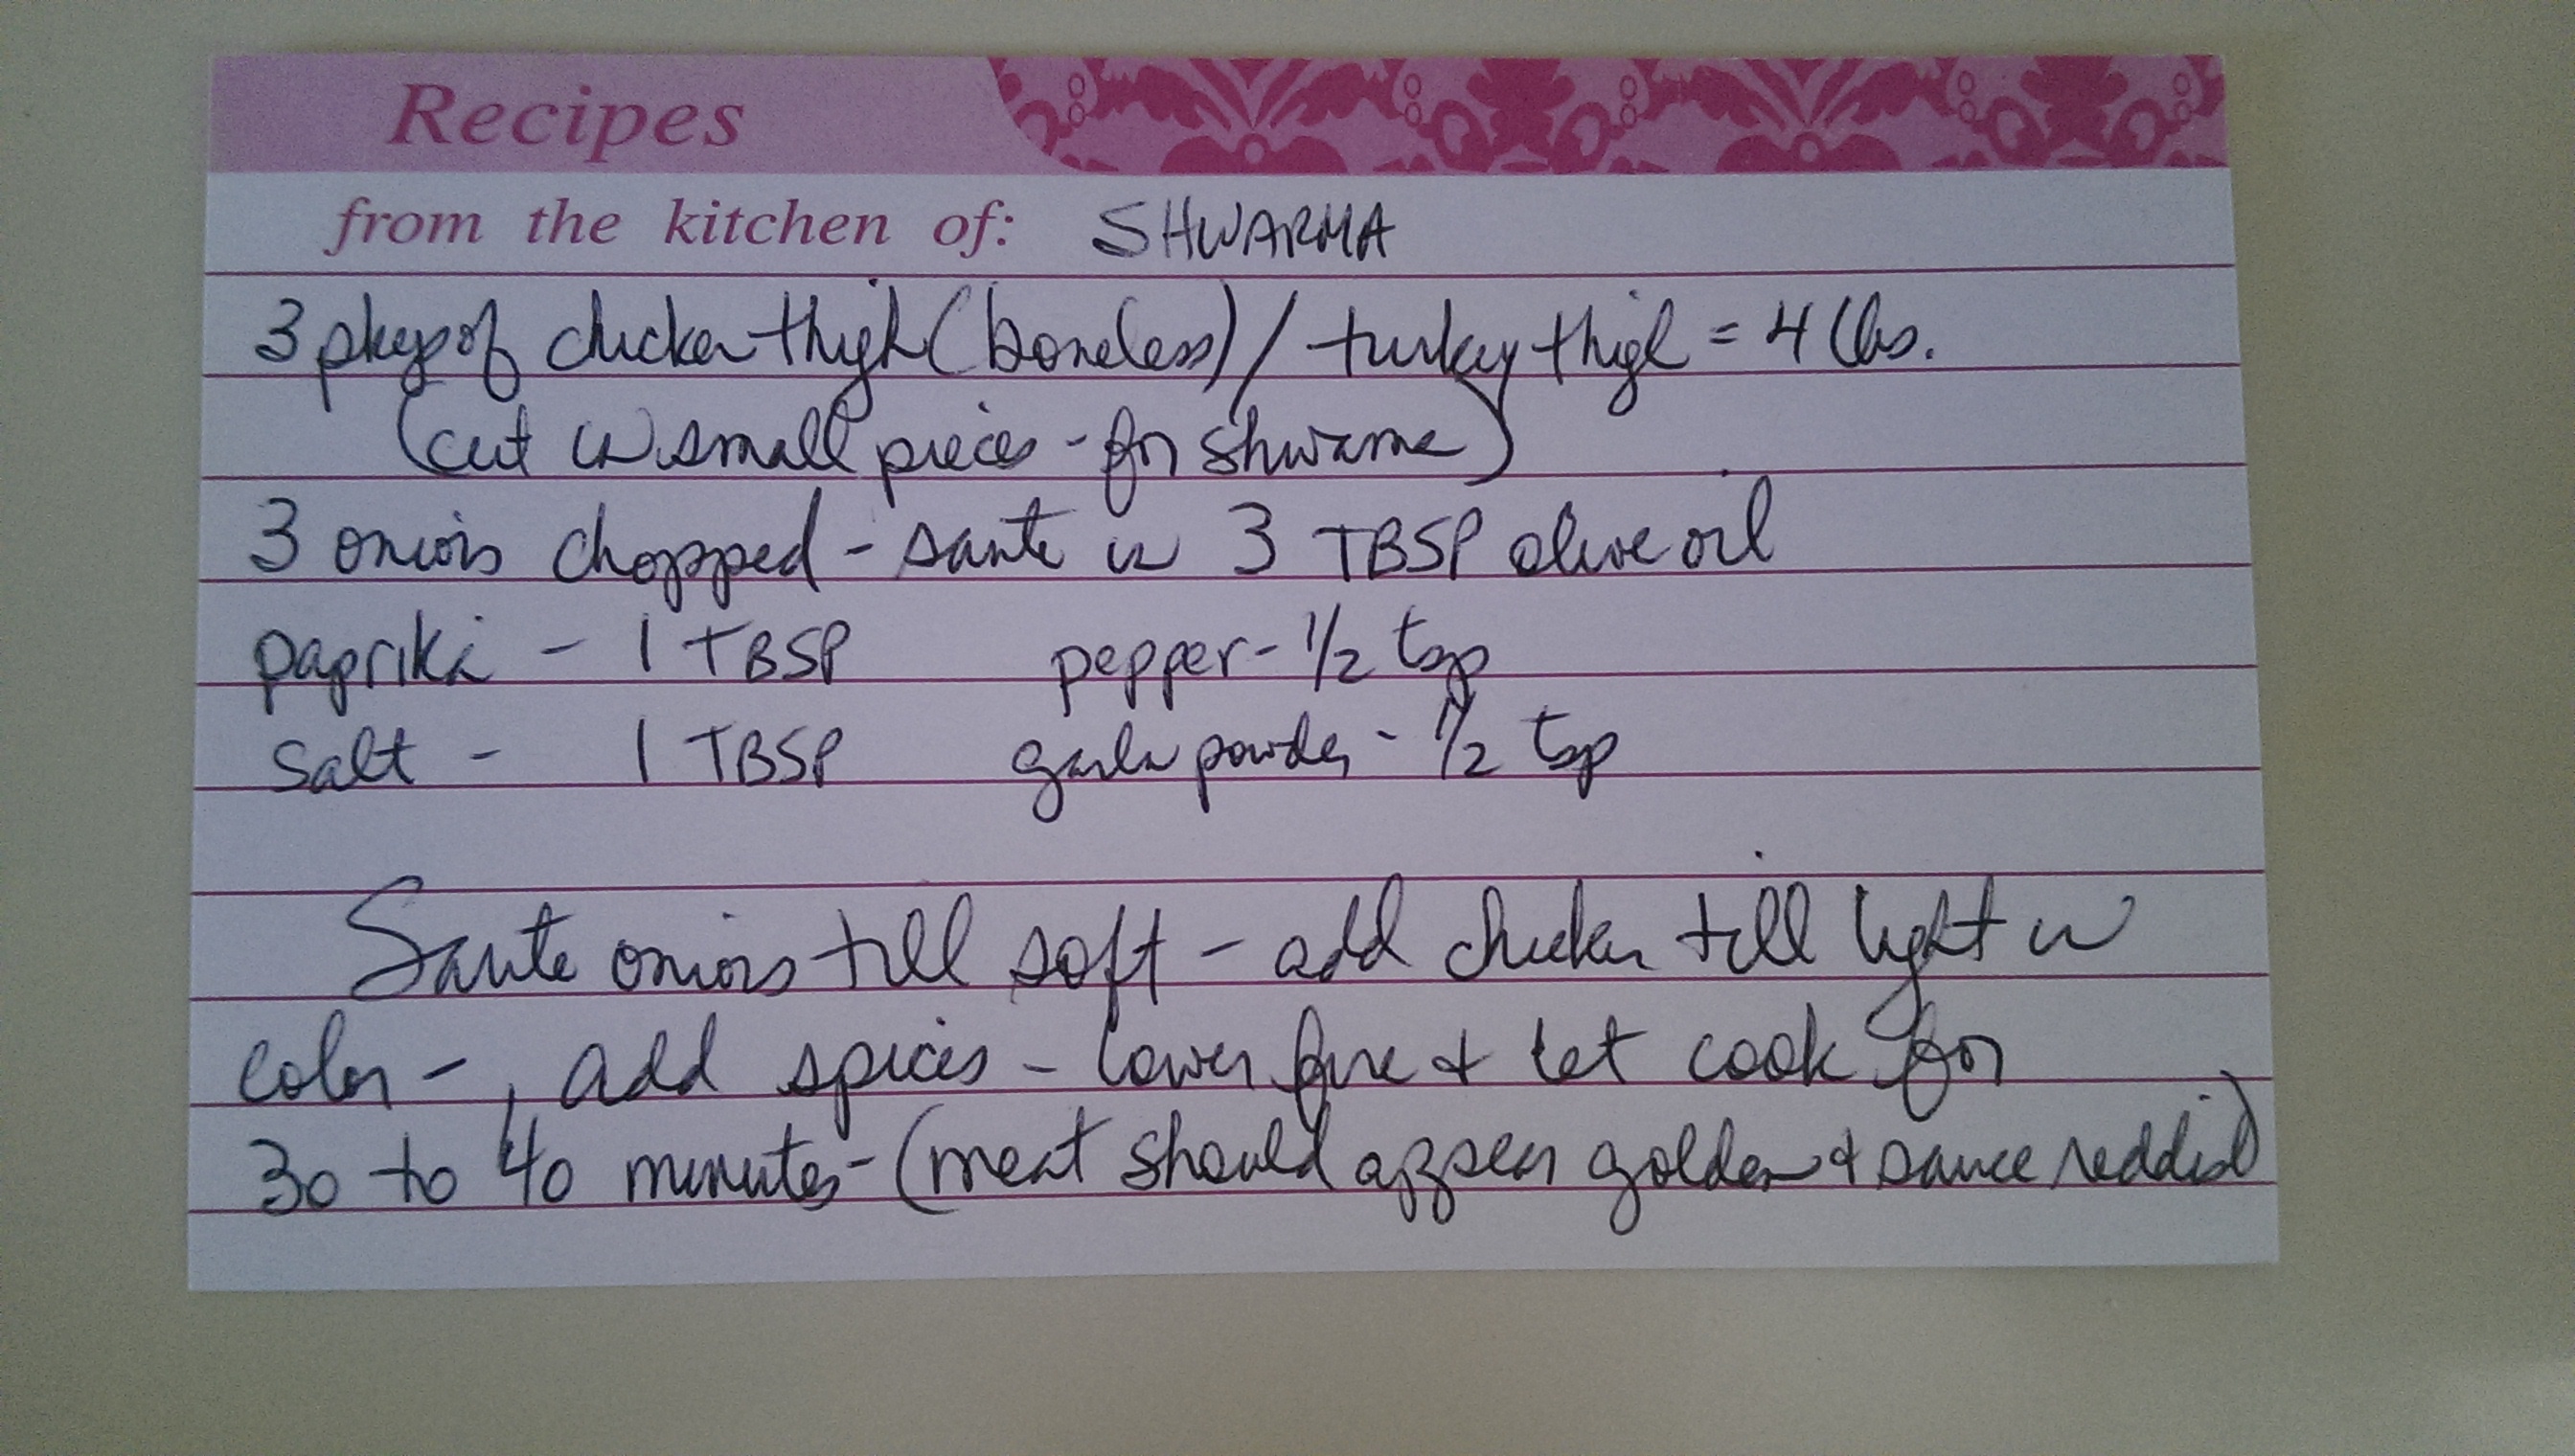 Recipes
from the kitchen of: SHWARMA
3 pkgs of chicken thigh (boneless) / turkey thigh = 4 lbs.
(cut in small pieces - for shwarma)
3 onions chopped - saute in 3 TBSP olive oil
paprika - 1 TBSP pepper - 1/2 tsp
salt - 1 TBSP garlic powder - 1/2 tsp
Saute onions till soft - add chicken till light in
color - , add spices - lower fire & let cook for
30 to 40 minutes - (meat should appear golden & sauce reddish)